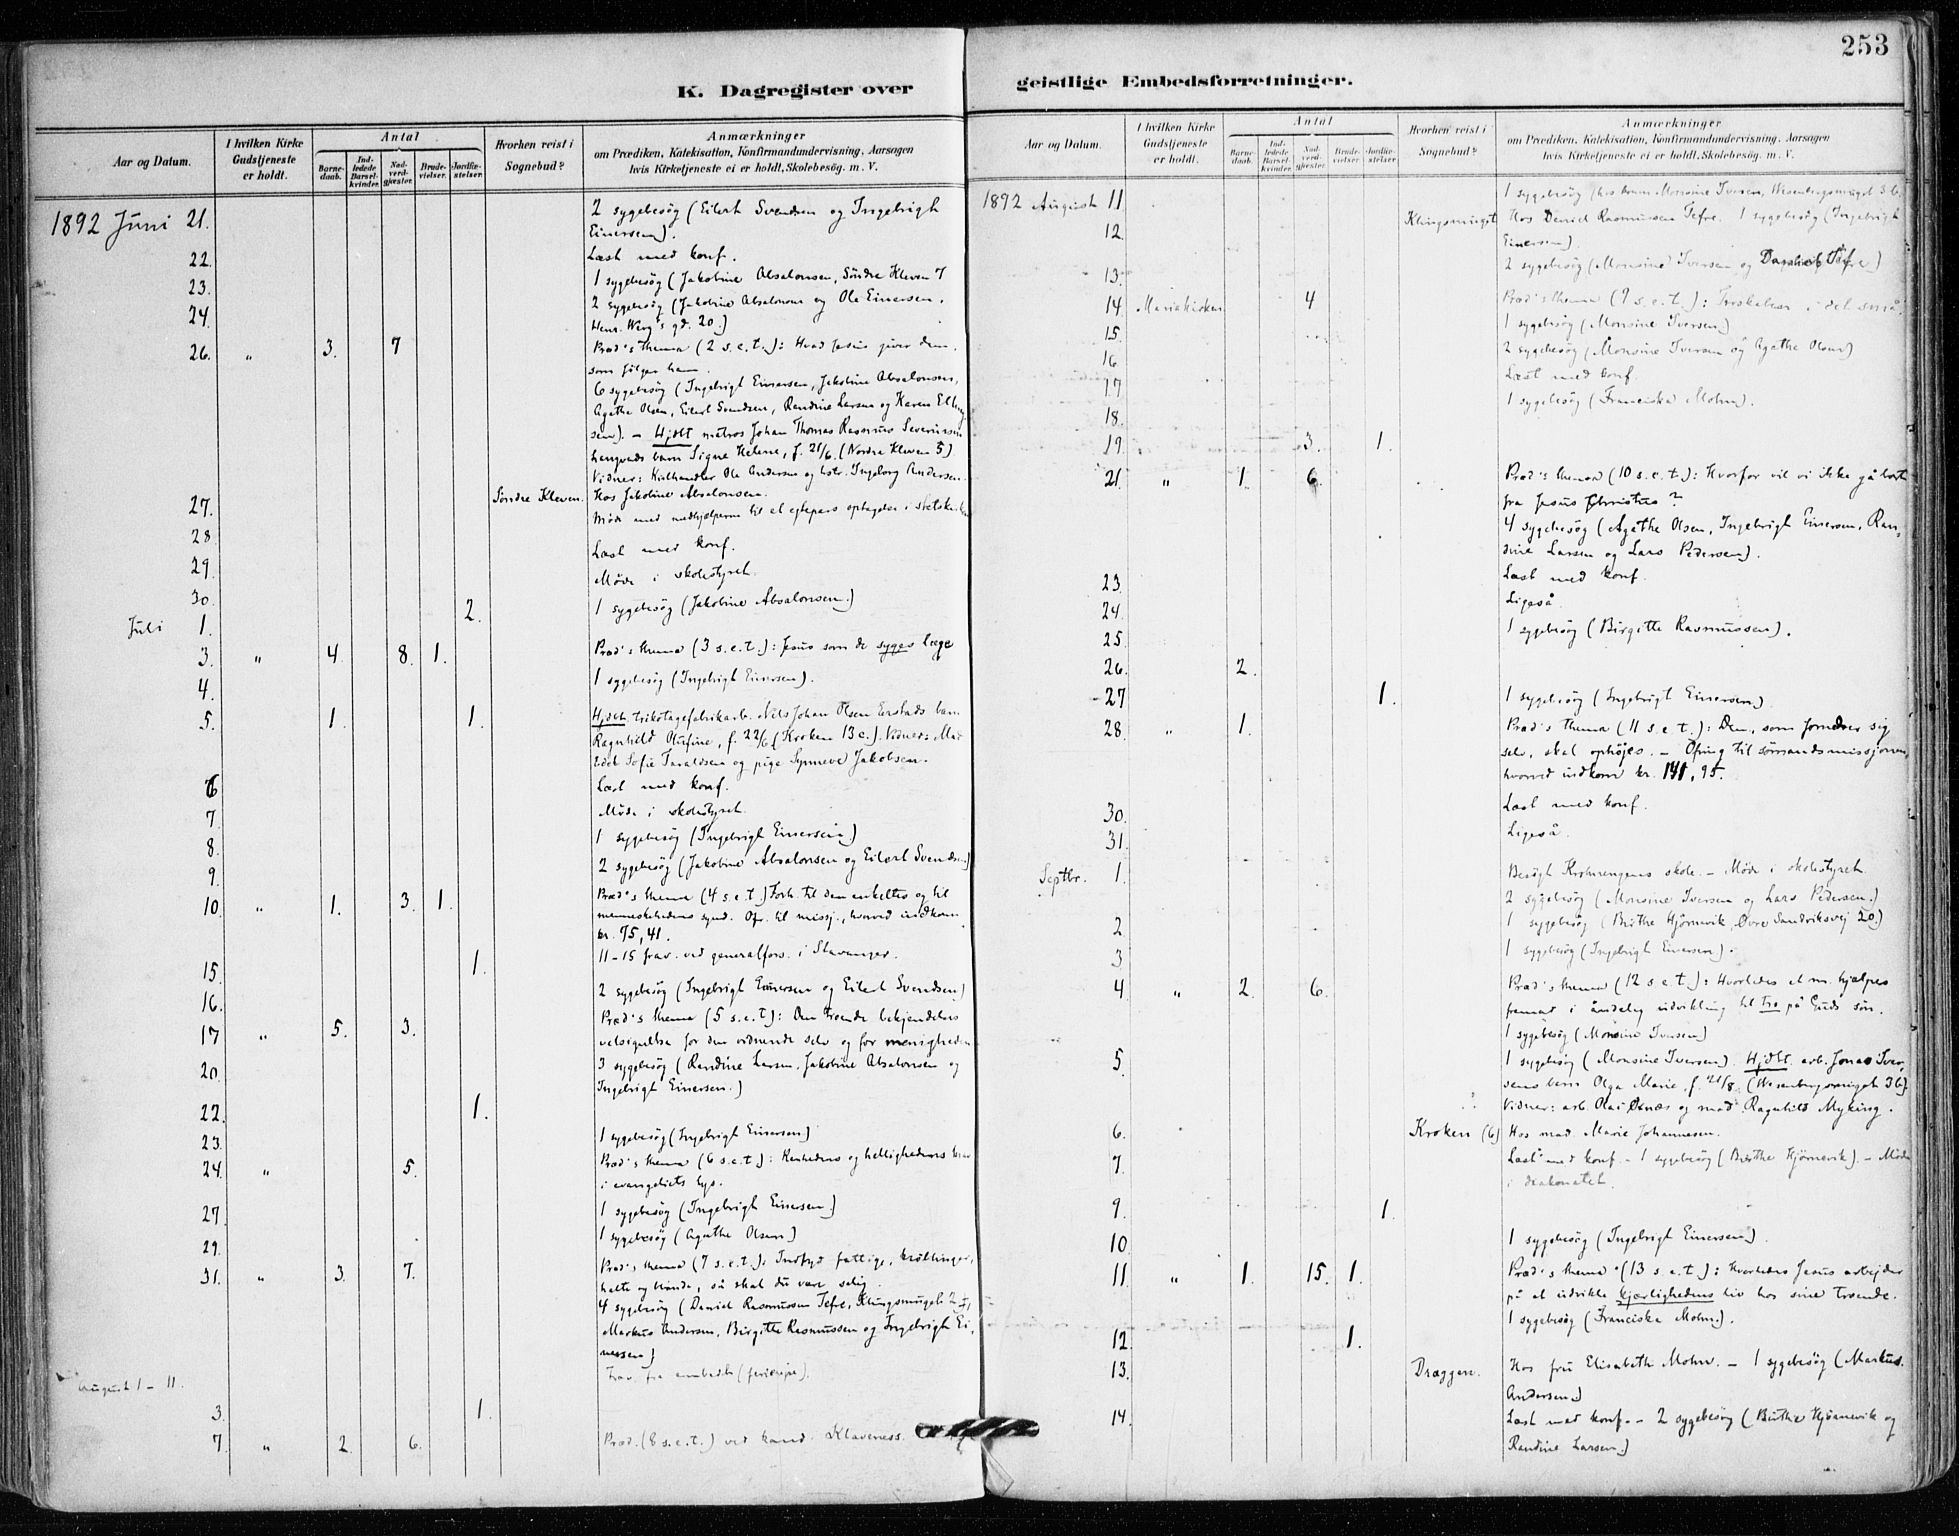 253
K. Dagregister over geistlige Embedsforretninger.
Aar og Datum.
I hvilken Kirke Gudstjeneste er holdt.
Antal
Barnedaab.
Indledede Barselkvinder.
Nadverdgjester.
Brudevielser.
Jordfæstelser.
Hvorhen reist i Sognebud?
Anmærkninger
om Prædiken, Katekisation, Konfirmandundervisning, Aarsagen
hvis Kirketjeneste ei er holdt, Skolebesøg. m. V.
1892 Juni 21. 2 sygebesög (Eilert Svendsen og Ingebrigt
Einersen).
22. Læst med konf.
23. 1 sygebesög (Jakobine Absalonsen, Söndre Kleven 7
24. 2 sygebesög (Jakobine Absalonsen og Ole Einersen,
20.)
26. " 3. 7 Præd's thema (2 s.e.t.): Hvad Jesus giver dem,
som følger ham.
6 sygebesög (Ingebrigt Einersen, Jakobine Absalonsen,
Agathe Olsen, Eilert Svendsen, Randine Larsen og Karen
sen). – Hjdbt matros Johan Thomas Rasmus Severinsen
barn Signe Helene, f. 21/6. (Nordre Kleven 5)
Vidner: Ole Andersen og Ingeborg Andersen.
27. Söndre Kleven. Hos Jakobine Absalonsen.
Møde med medhjælperne til et egtepars optagelse i
28 Læst med konf.
29. Møde i skolestyret.
30. 2. 1 sygebesög (Jakobine Absalonsen.)
Juli 1.
3. " 4. 8. 1. Præd's thema (3 s.e.t.): Jesus som de syges læge
4. 1 sygebesög (Ingebrigt Einersen).
5. 1. 1. Hjdbt. trikotagefabrikarb. Nils Johan Olsen barn
Ragnhild Olufine, f. 22/6 (Kroken 13 c.). Vidner:
Sofie Taraldsen og pige Synneve Jakobsen.
6 Læst med konf.
7. Møde i skolestyret.
8. 1 sygebesög (Ingebrigt Einersen.)
9. 2 sygebesög (Jakobine Absalonsen og Eilert Svendsen)
10. " 1. 3. 1. Præd's thema (4 s.e.t.) Forh. til den enkeltes og til
menneskehedens synd. Ofr. til missj., hvorved indkom
kr. 75,41.
11–15 frav. ved generalfors. i Stavanger.
15. 1.
16. 2 sygebesög (Ingebrigt Einersen og Eilert Svendsen.)
17 " 5. 3. Præd's thema (5 s.e.t.): Den troende bekjendelses
velsignelse for den vidnende selv og for menigheden
20. 3 sygebesög (Randine Larsen, Jakobine Absalonsen og
Ingebrigt Einersen.)
22. 1.
23. 1 sygebesög (Ingebrigt Einersen)
24. " 5. Præd's thema (6 s.e.t.): Renhedens og hellighedens krav
i evangeliets lys.
27. 1 sygebesög (Ingebrigt Einersen.)
29. 1 sygebesög (Agathe Olsen)
31. " 3. 7. Præd's thema (7 s.e.t.): Indbyd fattige, krøblinger,
halte og blinde, så skal du være salig.
4 sygebesög (Daniel Rasmussen Tefre, Klingsmuget 2
Markus Andersen, Birgitte Rasmussen og Ingebrigt Ei-
nersen)
August 1–11. Frav. fra embedet (feriereise).
3. 1.
7. " 2. 6. Præd. (8 s.e.t.) ved kand. Klaveness.
Aar og Datum.
I hvilken Kirke Gudstjeneste er holdt.
Antal
Barnedaab.
Indledede Barselkvinder.
Nadverdgjester.
Brudevielser.
Jordfæstelser.
Hvorhen reist i Sognebud?
Anmærkninger
om Prædiken, Katekisation, Konfirmandundervisning, Aarsagen
hvis Kirketjeneste ei er holdt, Skolebesøg. m. V.
1892 August 11 1 sygebesög (hos Monsine Iversen, Wesenbergsmuget 3 b.
12. Klingsmuget Hos Daniel Rasmussen Tefre. 1 sygebesög (Ingebrigt
Einersen)
13. 2 sygebesög (Monsine Iversen og Daniel Tefre)
14 Mariakirken 4 Præd's thema (9 s.e.t.): Troskaben i det små.
15. 1 sygebesög (Monsine Iversen)
16 2 sygebesög (Monsine Iversen og Agathe Olsen)
17 Læst med konf.
18. 1 sygebesög (Franciska Mohn).
19. 3. 1.
21. " 1. 6. Præd's thema (10 s.e.t.): Hvorfor vil vi ikke gå bort
fra Jesus Christus?
4 sygebesög (Agathe Olsen, Ingebrigt Einersen, Ran-
dine Larsen og Lars Pedersen).
23. Læst med konf.
24. Ligeså.
25. 1 sygebesög (Birgitte Rasmussen).
26. 2.
27 1. 1 sygebesög (Ingebrigt Einersen)
28. " 1. Præd's thema (11 s.e.t.): Den, som fornedrer sig
selv, skal ophøjes. – Ofring til missjonen,
hvorved indkom kr. 141,95.
30. Læst med konf.
31. Ligeså.
Septbr. 1. Besøgt Krohnengens skole. – Møde i skolestyret.
2 sygebesög (Monsine Iversen og Lars Pedersen.)
2 1 sygebesög (Birthe Hjørnevik, Øvre Sandviksvej 20.)
3 1 sygebesög (Ingebrigt Einersen).
4 " 2. 6. Præd's thema (12 s.e.t.): Hvorledes et m. hjælpes
fremad i åndelig udvikling til tro på Guds søn.
1 sygebesög (Monsine Iversen)
5. 1 sygebesög (Monsine Iversen). Hjdbt. arb. Jonas Iver-
sens barn Olga Marie, f. 21/8 (Wesenbergsmuget 3 b).
Vidner: arb. Olai og mad. Ragnhild Myking.
6. Kroken (6) Hos mad. Marie Johannesen.
7. Læst med konf. – 1 sygebesög (Birthe Hjørnevik). – Møde
i diakonatet.
9. 1.
10 1 sygebesög (Ingebrigt Einersen).
11. " 1. 15. 1. Præd's thema (13 s.e.t.): Hvorledes Jesus arbejder
på at udvikle kjærlighedens liv hos sine troende.
1 sygebesög (Franciska Mohn.).
12. 1.
13. Dræggen. Hos fru Elisabeth Mohn. – 1 sygebesög (Markus
Andersen)
14. Læst med konf. – 2 sygebesög (Birthe Hjørnevik og
Randine Larsen.)